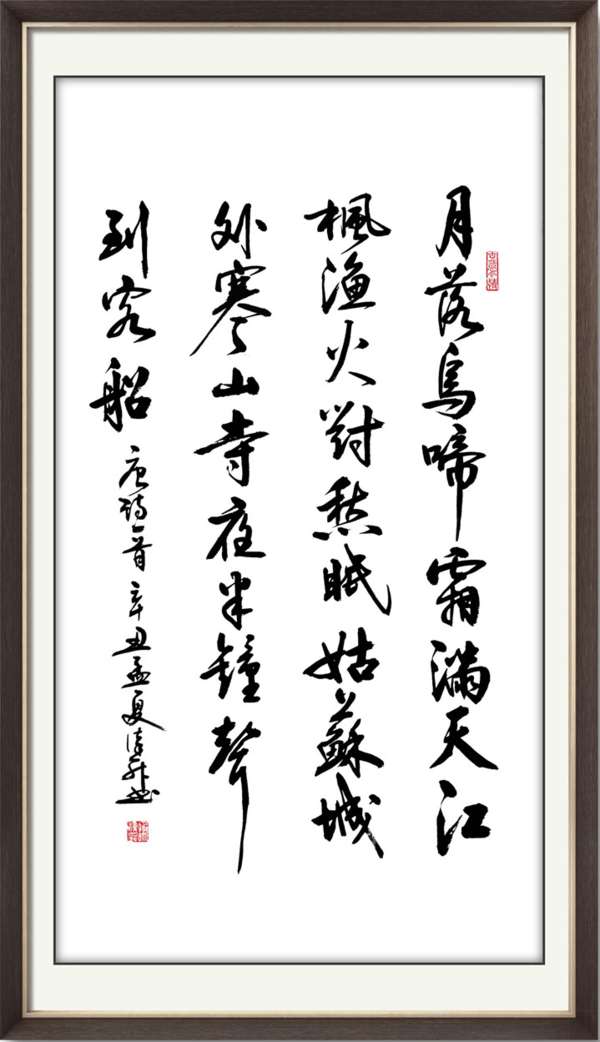 月落烏啼霜滿天江
楓漁火對愁眠姑蘇城
外寒山寺夜半鐘聲
到客船
唐詩一首辛丑孟夏